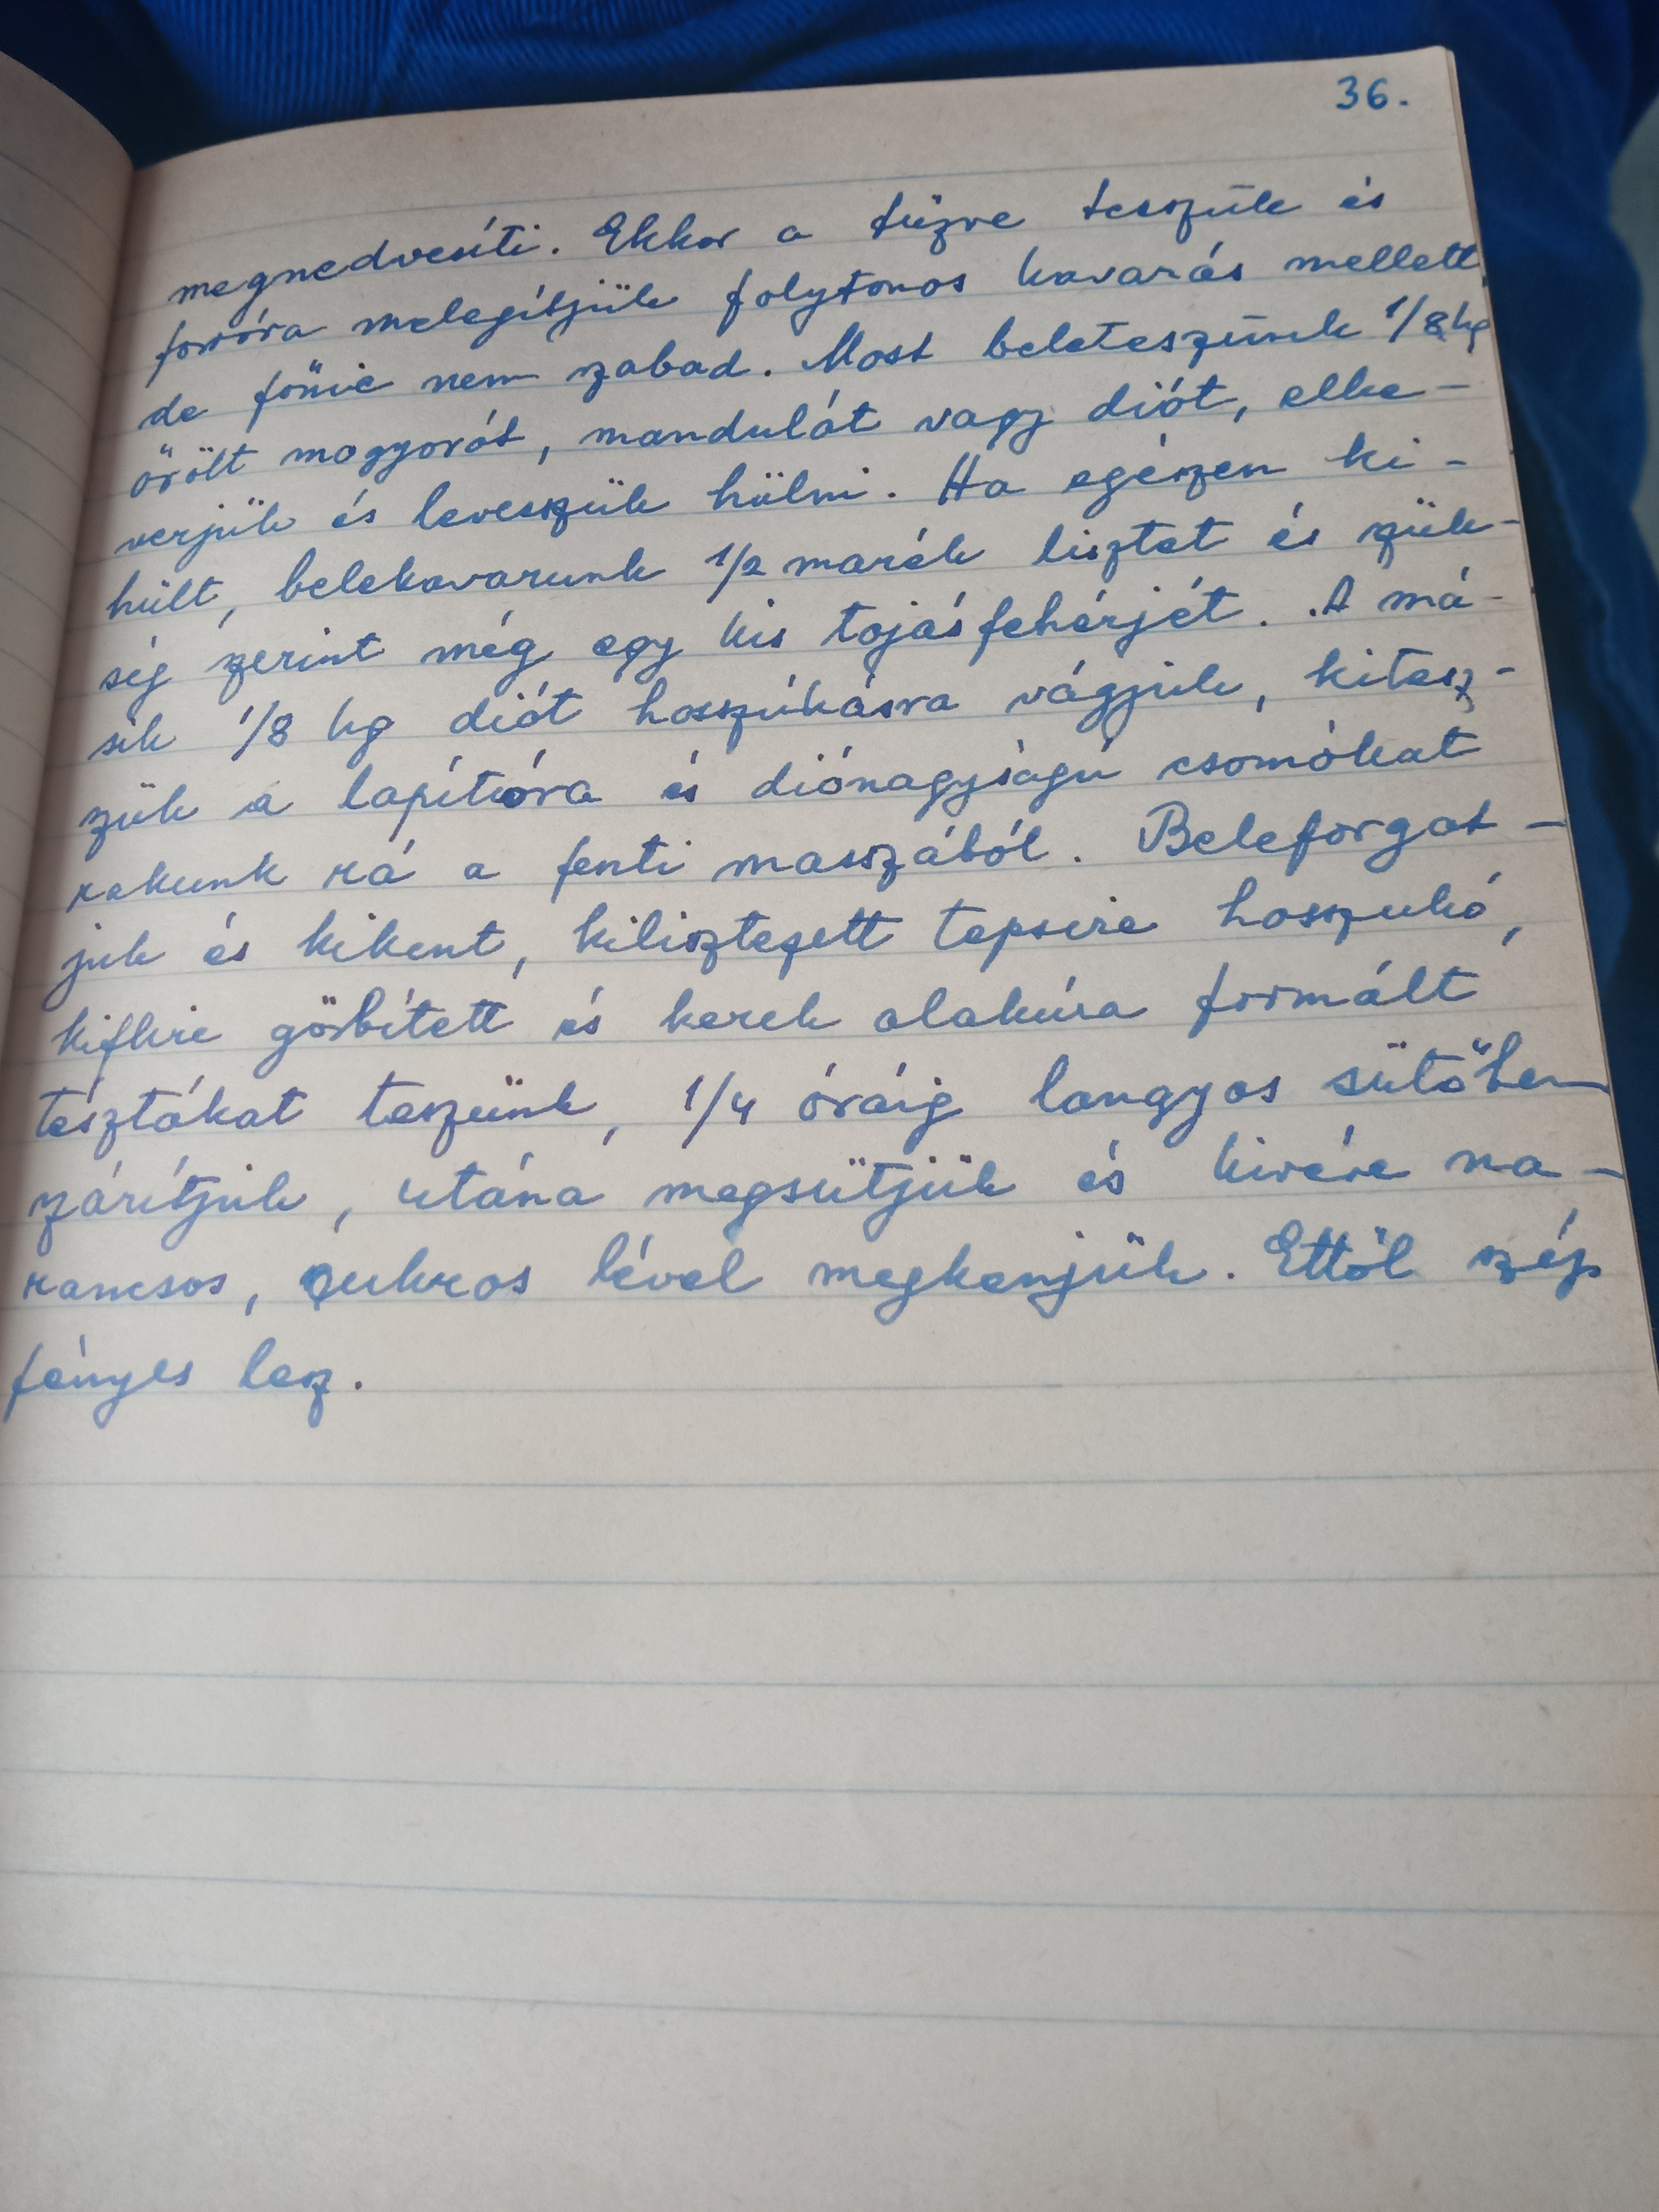 36.
megnedvesíti. Ekkor a tűzre tesszük és
forróra melegítjük folytonos kavarás mellett
de főnie nem szabad. Most beleteszünk 1/8 kg
őrölt mogyorót, mandulát vagy diót, elke-
verjük és levesszük hülni. Ha egészen ki-
hült, belekavarunk 1/2 marék lisztet és szük-
ség szerint még egy kis tojásfehérjét. A má-
sik 1/8 kg diót hosszúkásra vágjuk, kitesz-
szük a lapítóra és diónagyságú csomókat
rakunk rá a fenti masszából. Beleforgat-
juk és kikent, kilisztezett tepsire hosszukó,
kiflire görbített és kerek alakúra formált
tésztákat teszünk, 1/4 óráig langyos sütőben
szárítjuk, utána megsütjük és kivéve na-
rancsos, cukros lével megkenjük. Ettől szép
fényes lesz.